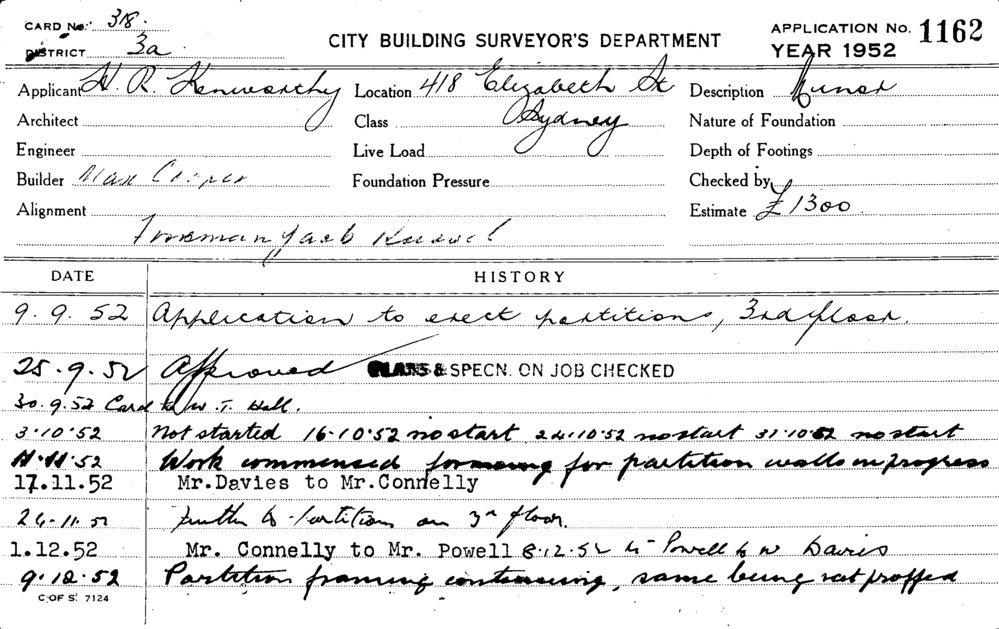 CARD No. 318.
DISTRICT 3a
CITY BUILDING SURVEYOR'S DEPARTMENT
APPLICATION No. 1162
YEAR 1952
Applicant H. R. Kenworthy
Location 418 Elizabeth St
Sydney
Description Minor
Architect
Class
Nature of Foundation
Engineer
Live Load
Depth of Footings
Builder Max Cooper
Foundation Pressure
Checked by
Alignment
Estimate £1300
Foreman Jack
DATE HISTORY
9. 9. 52 Application to erect partitions, 3rd floor.
25. 9. 52 Approved PLANS & SPECN. ON JOB CHECKED
30.9.52 Card to W. T. Hall.
3.10.52 Not started 16.10.52 no start 24.10.52 no start 31.10.52 no start
11.11.52 Work commensed for partition walls in progress
17.11.52 Mr.Davies to Mr.Connelly
24.11.52 further to partitions on 3rd floor.
1.12.52 Mr. Connelly to Mr. Powell 8.12.52 Mr Powell to Mr Davies
9.12.52 Partition framing continuing, same being rat proffed
C OF S. 7124